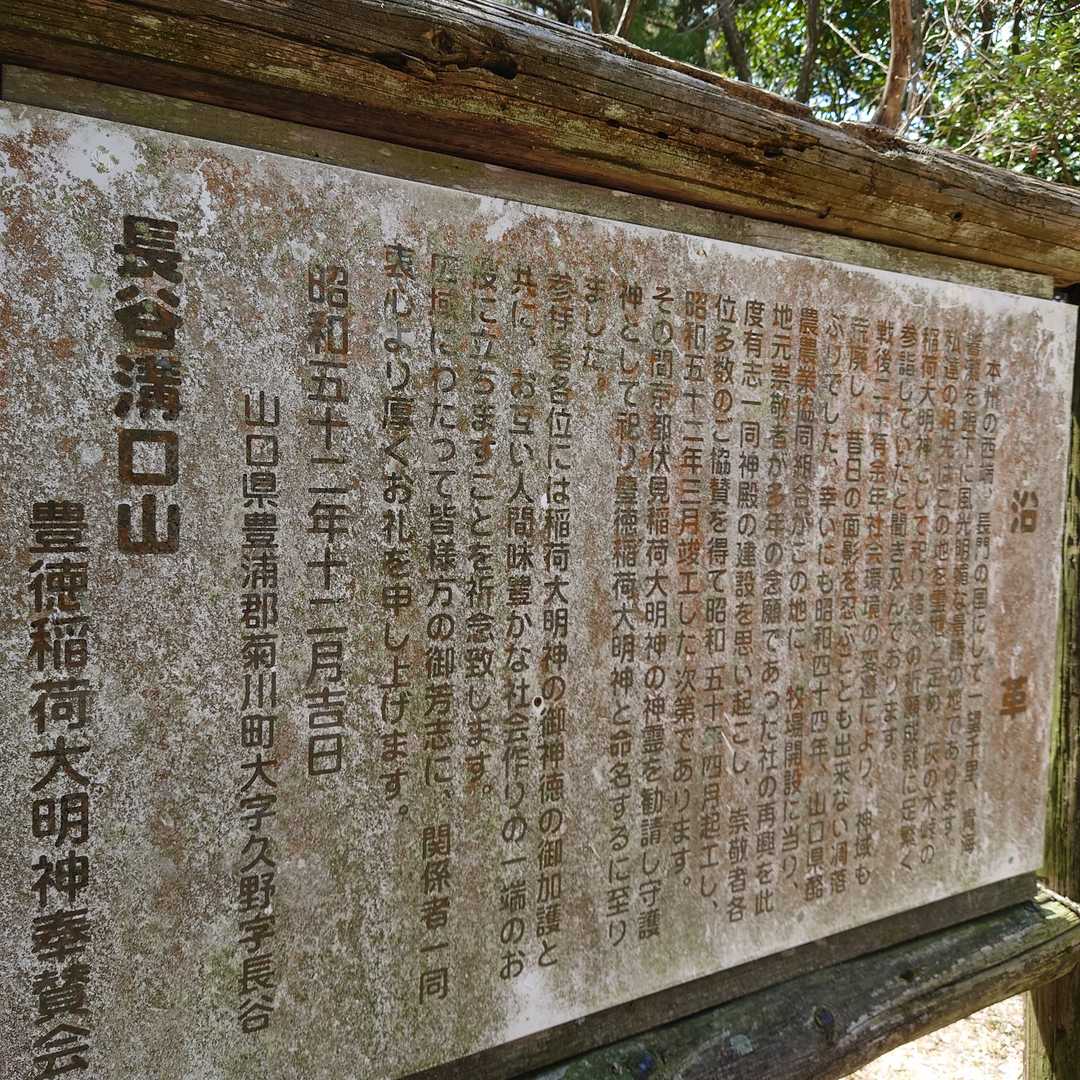 沿革
本地の西端、長門の里にして一望千里、響灘
を眼下に風光明媚な景勝の地であります
私達の祖先はこの地を霊域と定め
稲荷大明神として祀り
参詣していたと聞き及んであります。
戦後二十有余年社会環境の変遷により、神域も
荒廃し、昔日の面影を忍ぶことも出来ない凋落
ぶりでした、幸いにも昭和四十四年、山口県酪
農農業協同組合がこの地に、牧場開設に当り、
地元崇敬者が多年の念願であった社の再興を此
度有志一同神殿の建設を思い起こし、崇敬者各
位多数のご協賛を得て昭和五十一年四月起工し、
昭和五十二年三月竣工した次第であります。
その間京都伏見稲荷大明神の神霊を勧請し守護
神として祀り豊徳稲荷大明神と命名するに至り
ました。
参拝者各位には稲荷大明神の御神徳の御加護と
共に、お互い人間味豊かな社会作りの一端のお
役に立ちますことを祈念致します。
広域にわたって皆様方の御芳志に、関係者一同
衷心より厚くお礼を申し上げます。
昭和五十二年十二月吉日
山口県豊浦郡菊川町大字久野字長谷
長谷溝口山
豊徳稲荷大明神奉賛会